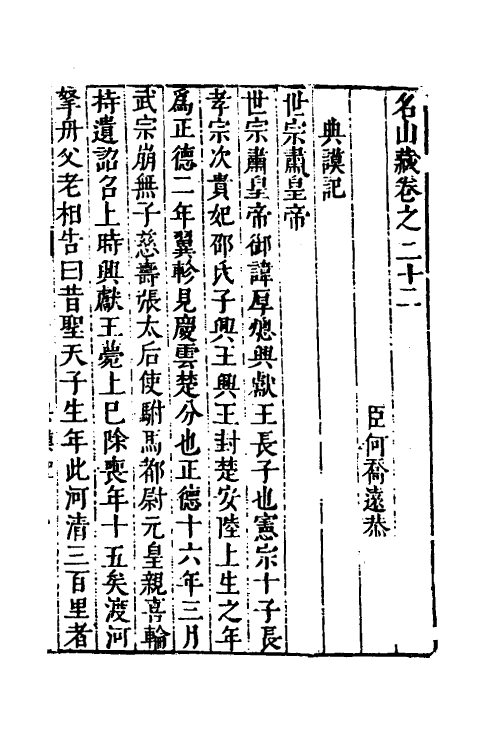 名山藏卷之二十二
臣何喬遠恭
典謨記
世宗肅皇帝
世宗肅皇帝御諱厚熜興獻王長子也憲宗十子長
孝宗次貴妃邵氏子興王興王封楚安陸上生之年
爲正德二年翼軫見慶雲楚分也正德十六年三月
武宗崩無子慈壽張太后使駙馬都尉元皇親喜輪
持遺詔召上時興獻王薨上巳除喪年十五矣渡河
拏舟父老相告曰昔聖天子生年此河清三百里者